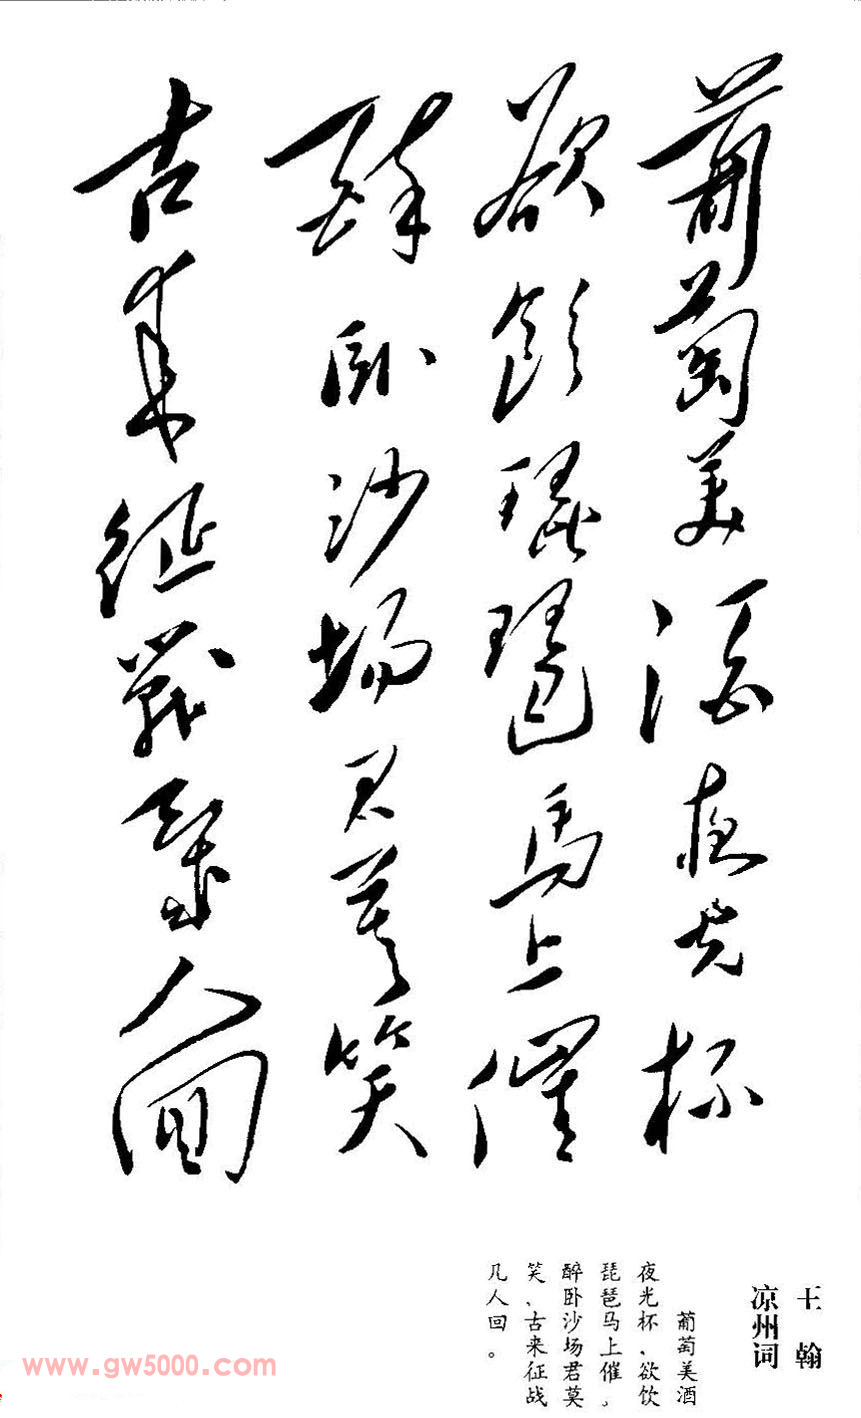 葡萄美酒夜光杯
欲饮琵琶马上催
醉卧沙场君莫笑
古来征战几人回
王翰
凉州词
葡萄美酒
夜光杯、欲饮
琵琶马上催。
醉卧沙场君莫
笑、古来征战
几人回。
www.gw5000.com